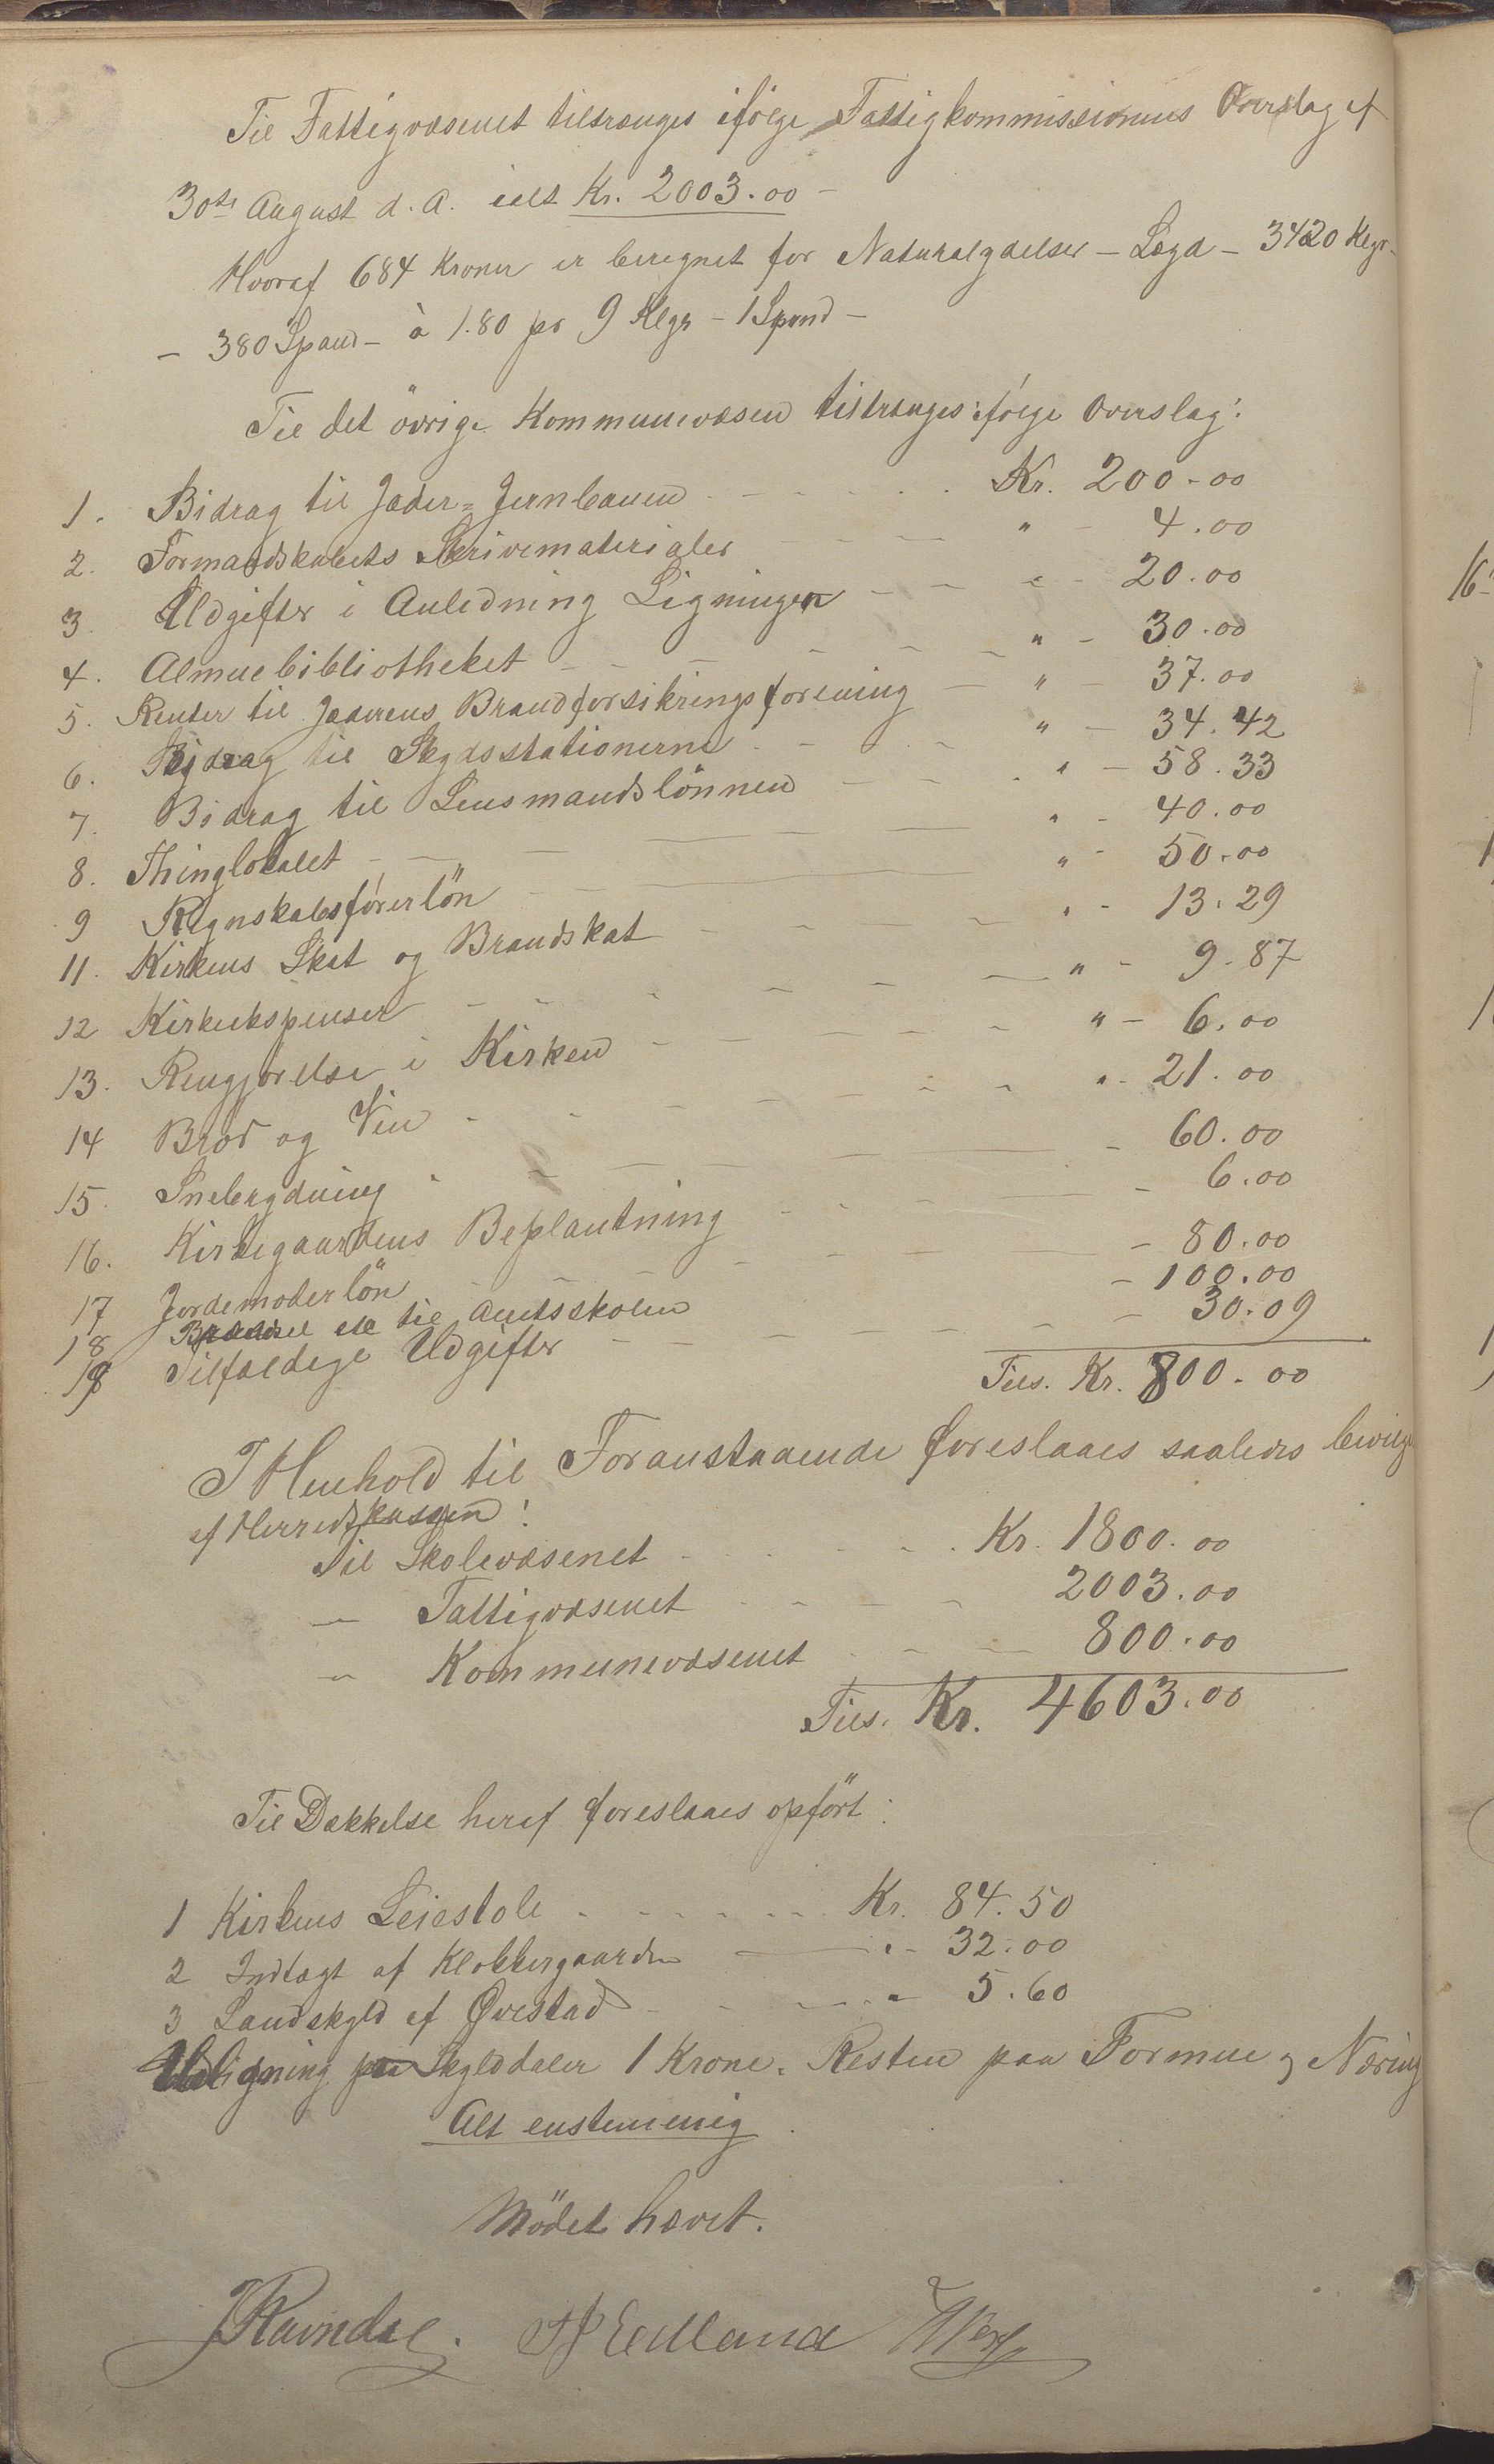 Til Fattigvæsenet tiltrænges ifølge Fattigkommissionens Overslag af
30te August d. A. ialt Kr. 2003.00 –
Hvoraf 684 Kroner er beregnet for Naturalydelser – Lægd – 3420 Klgr.
– 380 Spand – à 1.80 pr 9 Klgr – 1 Spand –
Til det övrige Kommunevæsen tiltrænges ifølge Overslag:
1. Bidrag til Jæder=Jernbanen Kr. 200.00
2. Formandskabets Skrivematerialer " – 4.00
3. Udgifter i Anledning Ligningen " – 20.00
4. Almuebibliotheket " – 30.00
5. Renter til Jæderens Brandforsikringsforening " – 37.00
6. Bidrag til Skydsstationerne " – 34.42
7. Bidrag til Lensmandslönnen " – 58.33
8. Thinglokalet " – 40.00
9 Regnskabsförerlön " – 50.00
11. Kirkens Skat og Brandskat " – 13.29
12 Kirkeekspenser " – 9.87
13. Rengjörelse i Kirken " – 6.00
14 Bröd og Vin " – 21.00
15. Snebrydning – 60.00
16. Kirkegaardens Beplantning – 6.00
17 Jordemoderlön – 80.00
18 til Amtsskolen – 100.00
19 Tilfældige Udgifter – 30.09
Tils. Kr. 800.00
I Henhold til Foranstaaende foreslaaes saaledes bevilget
af Herredskassen:
Til Skolevæsenet Kr. 1800.00
– Fattigvæsenet 2003.00
– Kommunevæsenet 800.00
Tils. Kr. 4603.00
Til Dækkelse heraf foreslaaes opfört:
1 Kirkens Leiestole Kr. 84.50
2 Indtægt af Klokkergaarden " – 32.00
3 Landskyld af Qvestad " – 5.60
Udligning paa Skylddaler 1 Krone. Resten paa Formue og Næring
Alt enstemmig.
Mödet hævet.
J Ravndal.